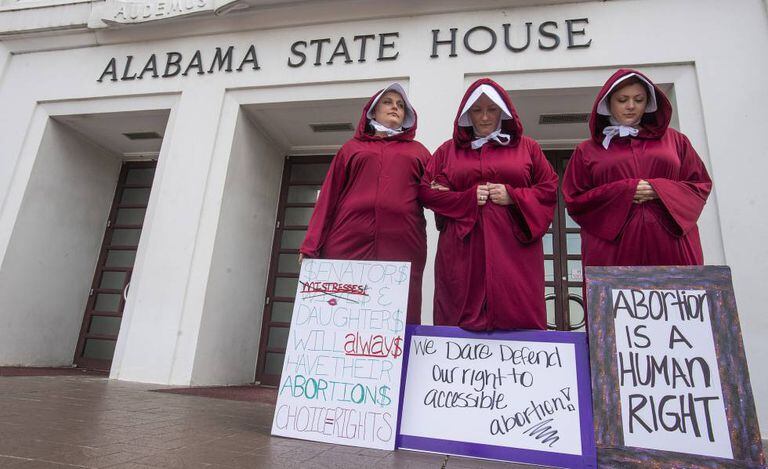 AUDEMUS
ALABAMA STATE HOUSE
$ENATOR$
MISTRESSES
&
DAUGHTER$
WILL alway$
HAVE THEIR
ABORTION$
CHOICE=RIGHTS
We Dare Defend
our right to
accessible
abortion!
ABORTION
IS A
HUMAN
RIGHT